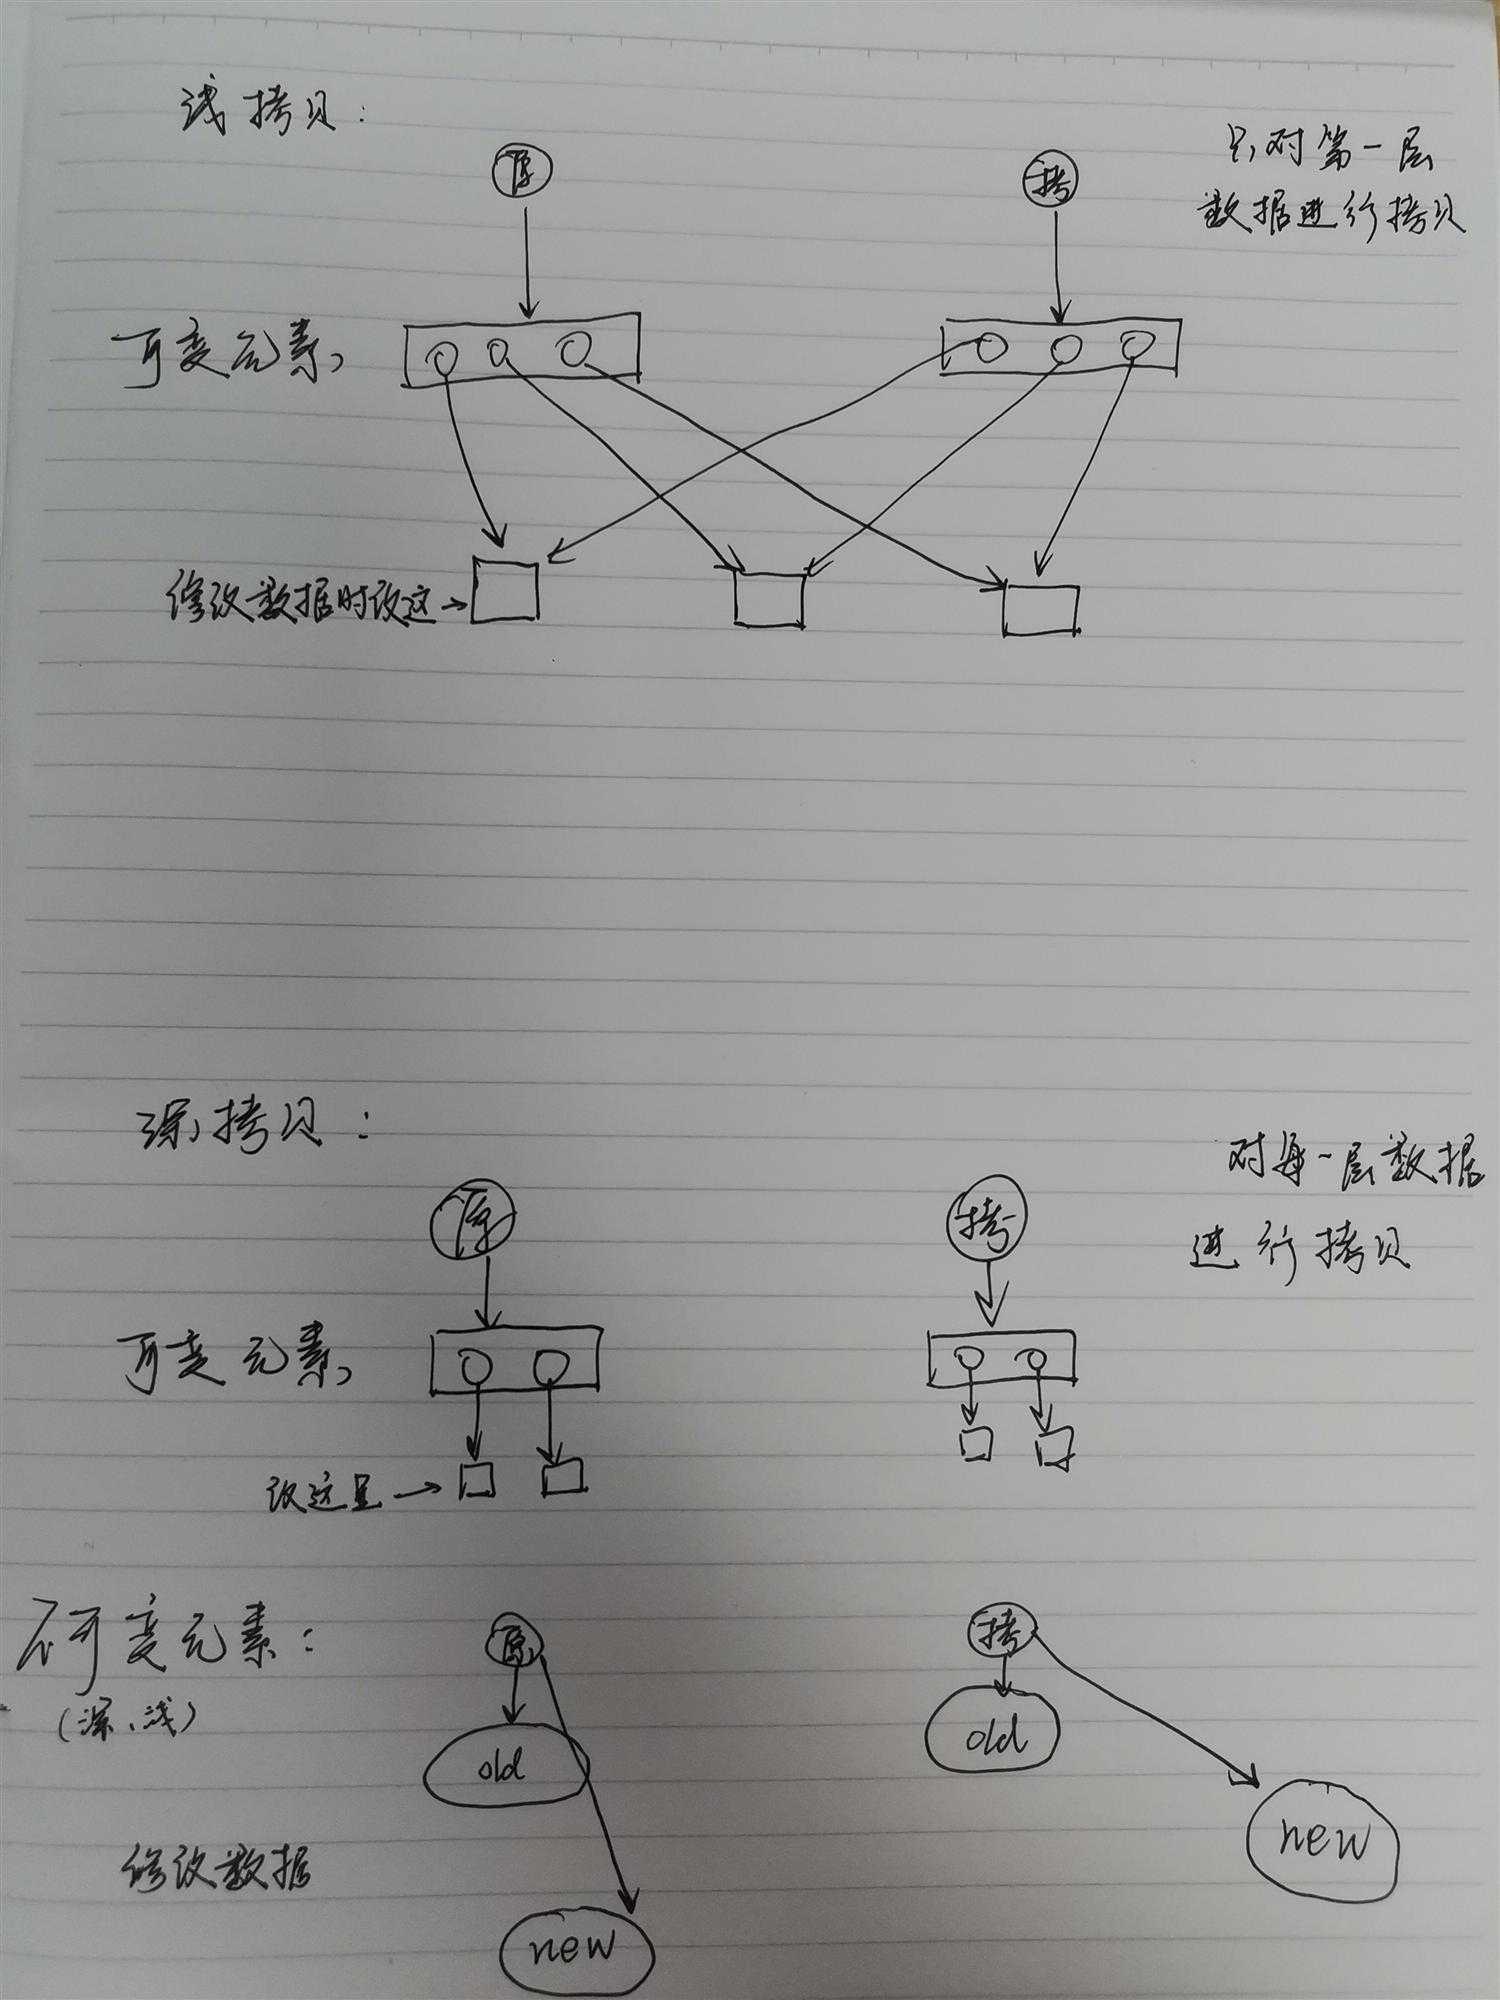 浅拷贝:
原
拷
只对第一层
数据进行拷贝
可变元素
修改数据时改这→
深拷贝:
原
拷
对每一层数据
进行拷贝
可变元素
改这里→
不可变元素:
(深、浅)
原
拷
old
old
修改数据
new
new